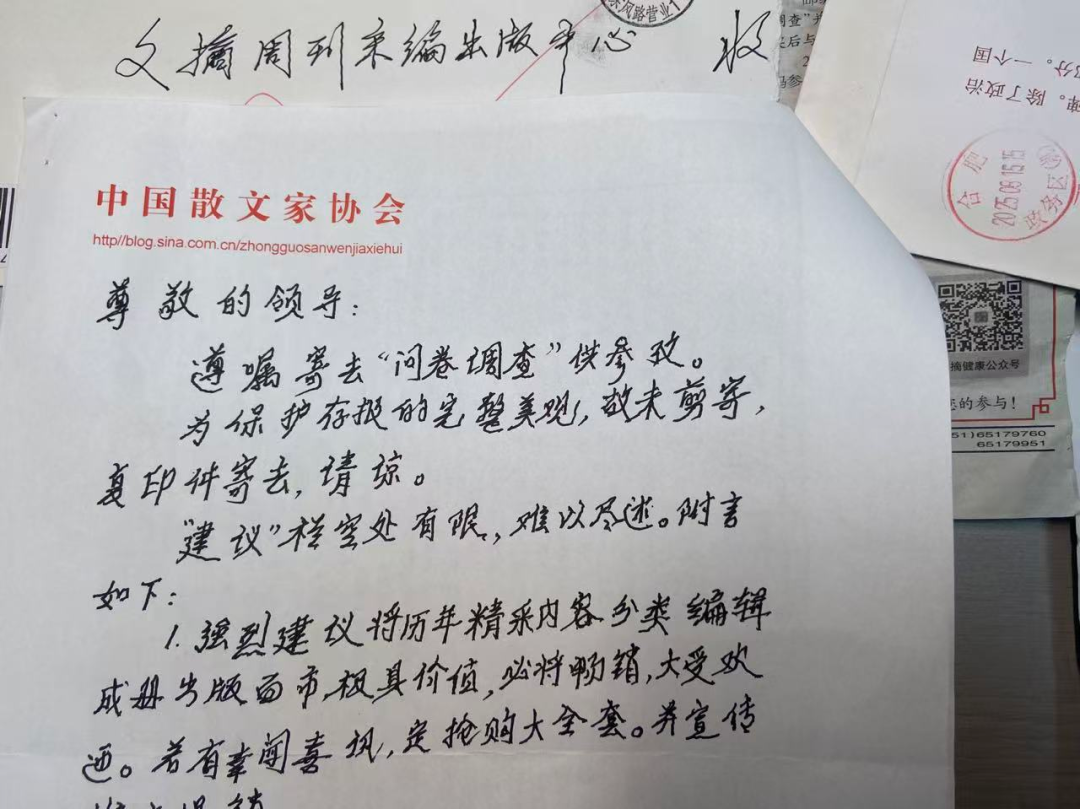 文摘周刊采编出版中心 收
中国散文家协会
http//blog.sina.com.cn/zhongguosanwenjiaxiehui
尊敬的领导:
遵嘱寄去“问卷调查”供参考。
为保护存报的完整美观,故未剪寄,
复印件寄去,请谅。
“建议”栏空处有限,难以尽述。附言
如下:
1.强烈建议将历年精采内容分类编辑
成册出版面市,极具价值,必将畅销,大受欢
迎。若有幸闻喜讯,定抢购大全套。并宣传
东风路营业
调查”
后与
参
一个国
除了政治
合肥
2025.09.15.15
政务区
摘健康公众号
的参与!
51)65179760
65179951